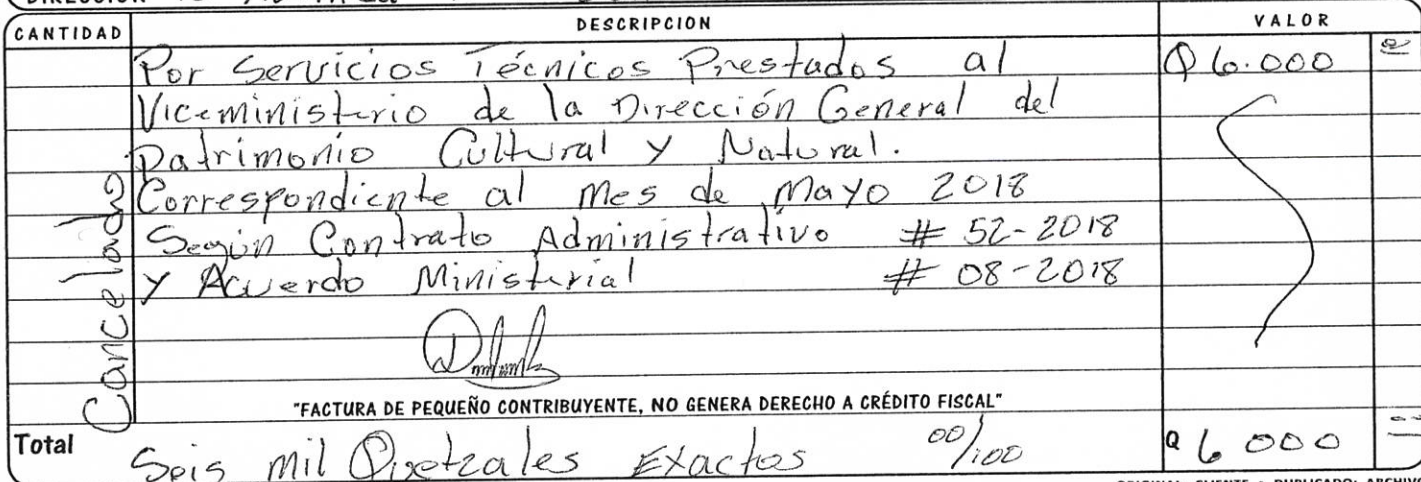 DIRECCION
CANTIDAD DESCRIPCION VALOR
Por Servicios Técnicos Prestados al Q 6.000
Viceministerio de la Dirección General del
Patrimonio Cultural y Natural.
Correspondiente al mes de Mayo 2018
Según Contrato Administrativo # 52-2018
y Acuerdo Ministerial # 08-2018
Cancelado
"FACTURA DE PEQUEÑO CONTRIBUYENTE, NO GENERA DERECHO A CRÉDITO FISCAL"
Total Seis mil Quetzales Exactos 00/100 Q 6 000
ORIGINAL: CLIENTE • DUPLICADO: ARCHIVO